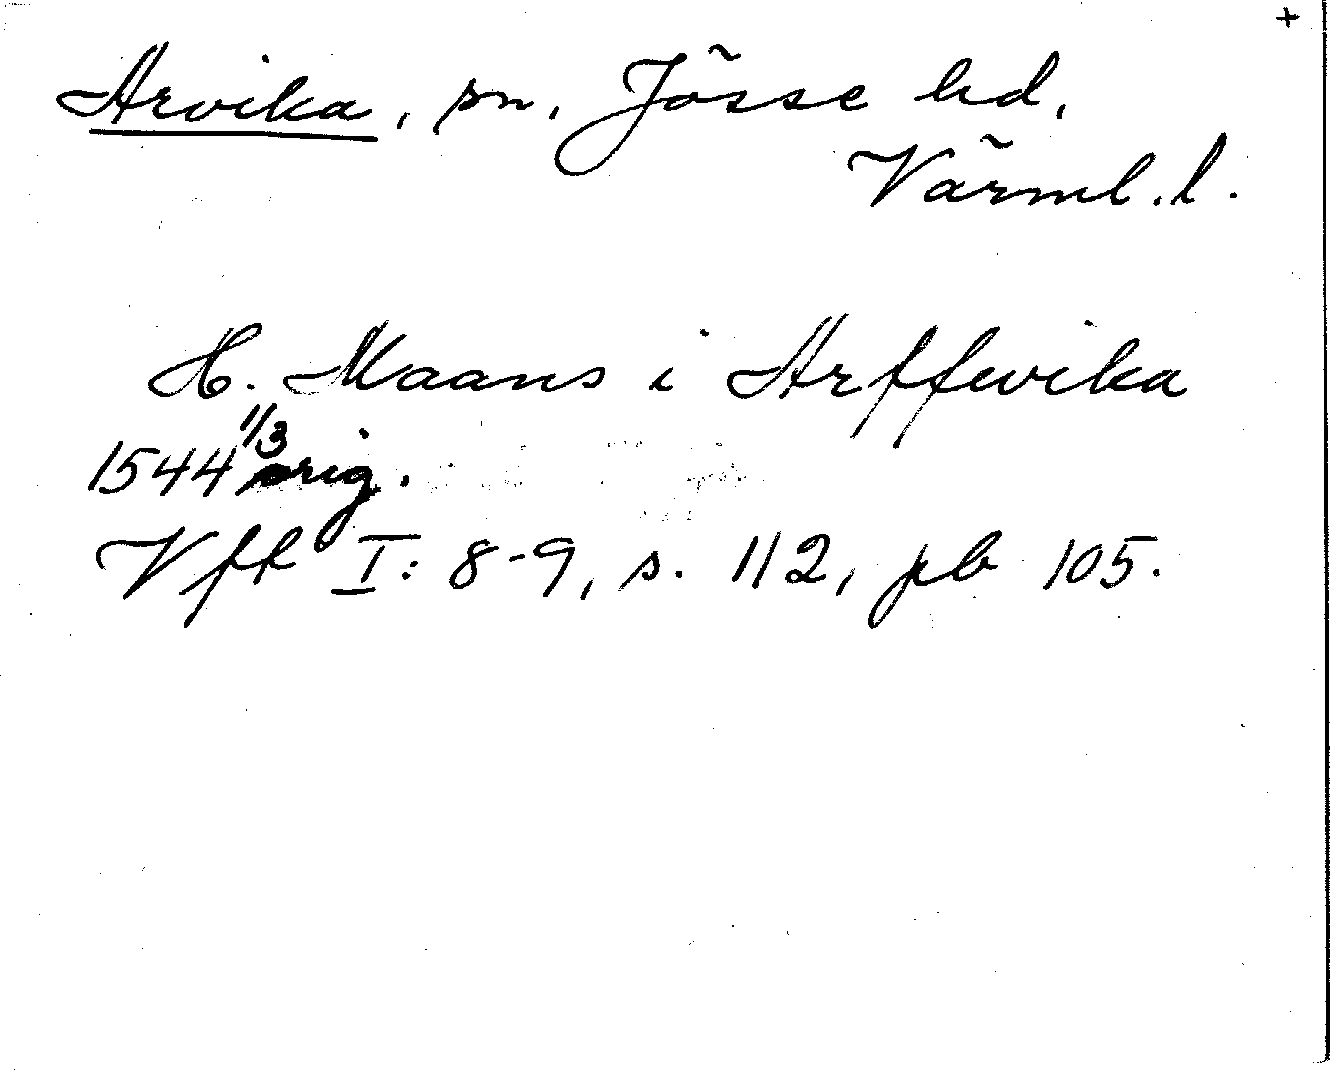 +
Arvika, sn, Jösse hd,
Värml. l.
H. Maans i Arffwika
1544 1/3 orig.
Vff I: 8-9, s. 112, pb 105.